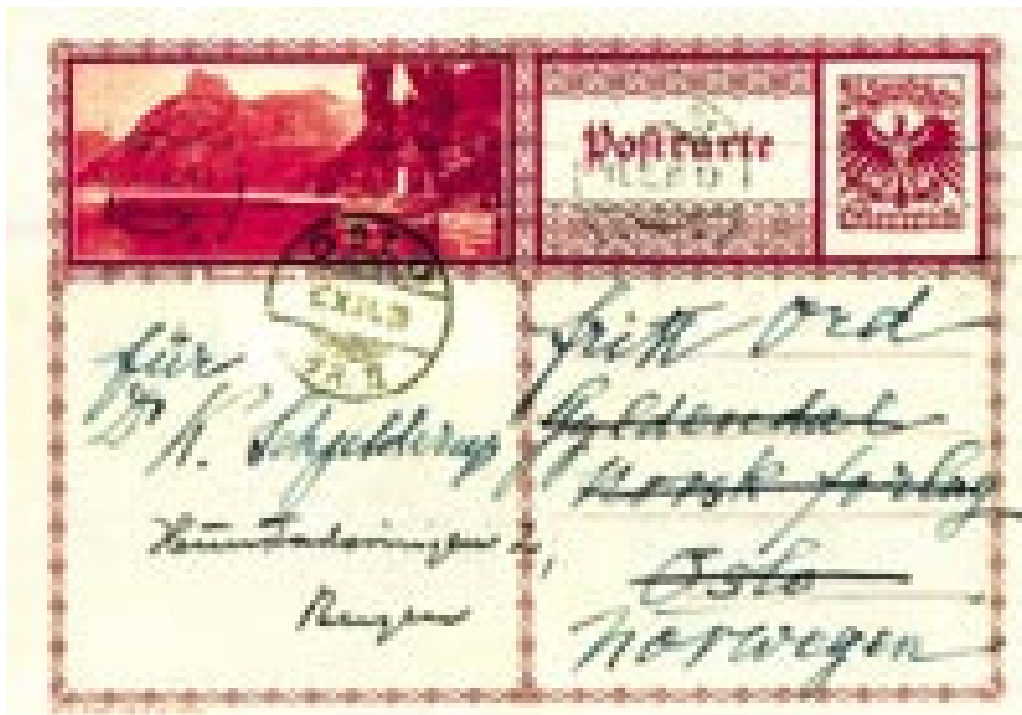 Postkarte
OSLO
für
Dr K. Schjelderup
Bergen
Fritt Ord
Gyldendal
Norsk forlag
Oslo
Norwegen